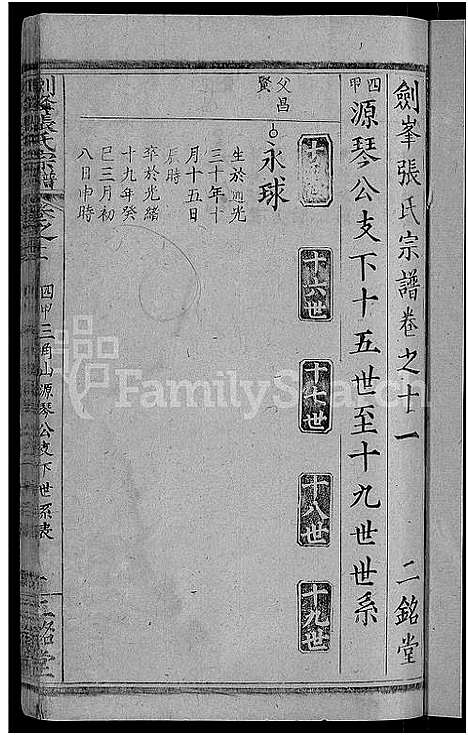 劍峯張氏宗譜卷之十一 二銘堂
四甲 源琴公支下十五世至十九世世系
十六世
十七世
十八世
十九世
父昌
永球
生於道光
三十年十
月十五日
辰時
卒於光緒
十九年癸
巳三月初
八日申時
張氏宗譜
四甲三角山源琴公支下世系表
二銘堂
FamilySearch